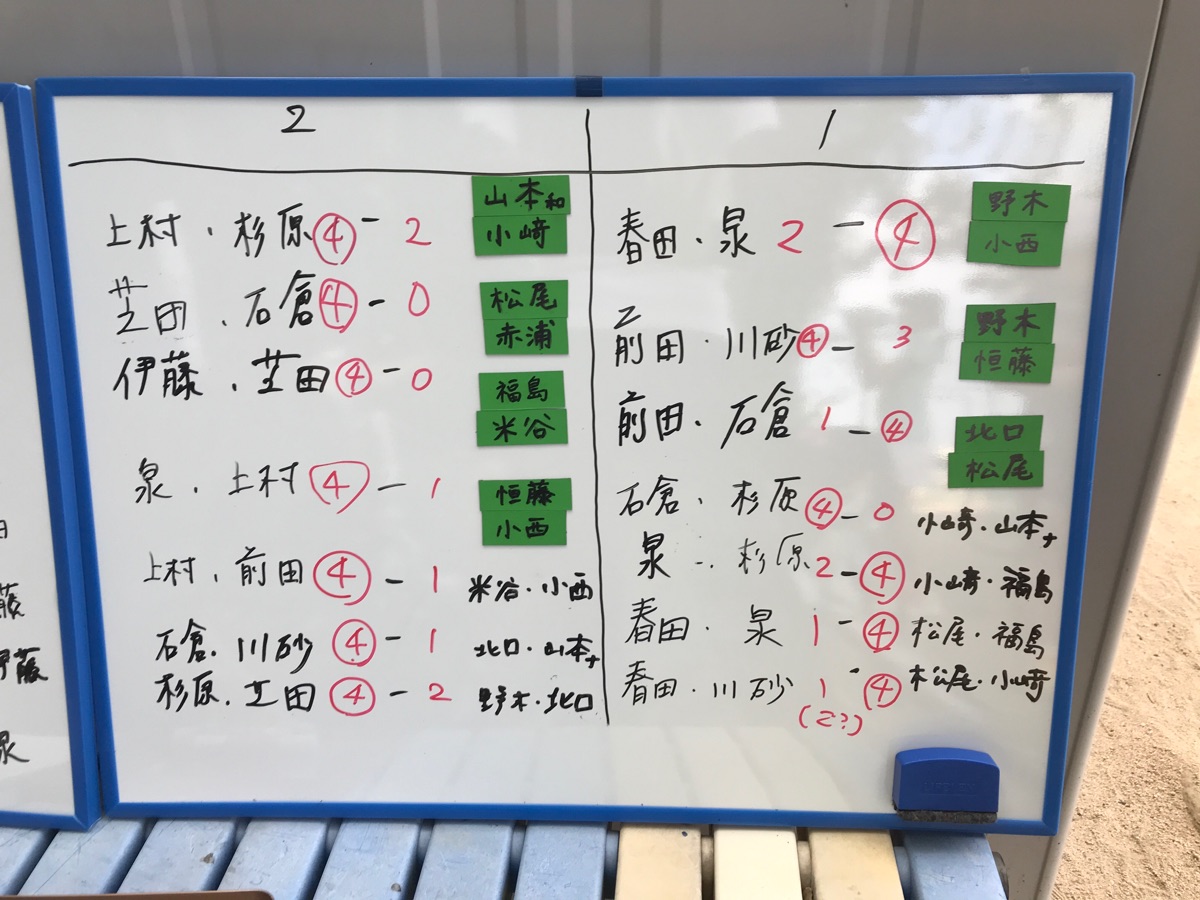 2
上村・杉原④-2 山本和 小﨑
芝田・石倉④-0 松尾 赤浦
伊藤・芝田④-0 福島 米谷
泉・上村④-1 恒藤 小西
上村・前田④-1 米谷・小西
石倉・川砂④-1 北口・山本
杉原・芝田④-2 野木・北口
1
春田・泉 2-④ 野木 小西
前田・川砂④-3 野木 恒藤
前田・石倉 1-④ 北口 松尾
石倉・杉原④-0 小﨑・山本
泉・杉原 2-④ 小﨑・福島
春田・泉 1-④ 松尾・福島
春田・川砂 1-④ 松尾・小﨑
(2?)
藤
伊藤
泉